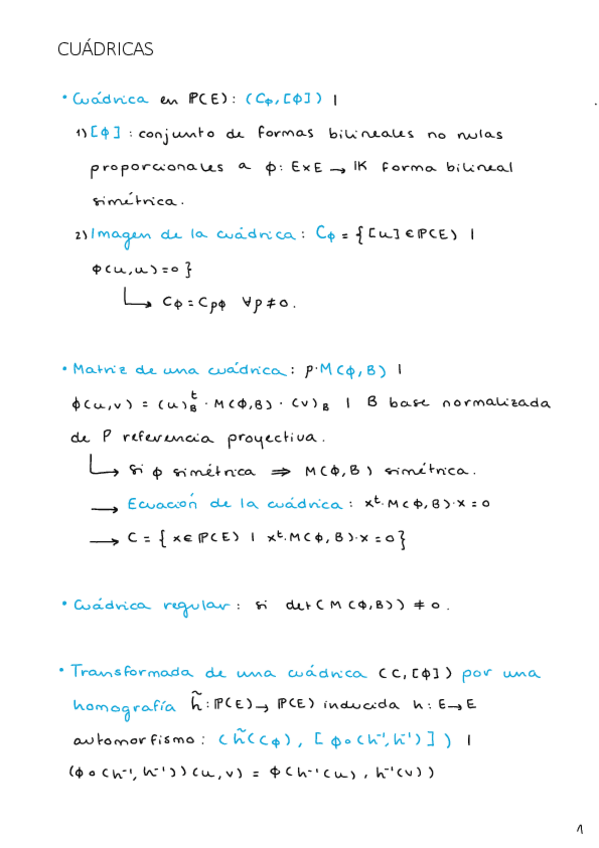 CUÁDRICAS
• Cuádrica en P(E): (Cφ, [φ]) |
1) [φ]: conjunto de formas bilineales no nulas
proporcionales a φ: E×E → IK forma bilineal
simétrica.
2) Imagen de la cuádrica: Cφ = {[u] ∈ P(E) |
φ(u,u)=0}
↳ Cφ = Cρφ ∀ρ≠0.
• Matriz de una cuádrica: ρ·M(φ,B) |
φ(u,v) = (u)ᵗ_B · M(φ,B) · (v)_B | B base normalizada
de P referencia proyectiva.
↳ si φ simétrica ⇒ M(φ,B) simétrica.
→ Ecuación de la cuádrica: xᵗ·M(φ,B)·x = 0
→ C = {x ∈ P(E) | xᵗ·M(φ,B)·x = 0}
• Cuádrica regular: si det(M(φ,B)) ≠ 0.
• Transformada de una cuádrica (C,[φ]) por una
homografía h̃: P(E) → P(E) inducida h: E→E
automorfismo: (h̃(Cφ), [φ∘(h⁻¹,h⁻¹)]) |
(φ∘(h⁻¹,h⁻¹))(u,v) = φ(h⁻¹(u), h⁻¹(v))
1